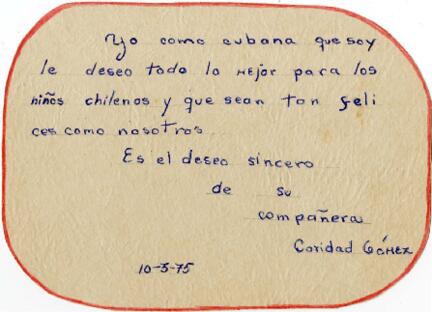 Yo como cubana que soy
le deseo todo lo mejor para los
niños chilenos y que sean tan feli
ces como nosotros
Es el deseo sincero
de su
compañera
Caridad Gómez
10-3-75